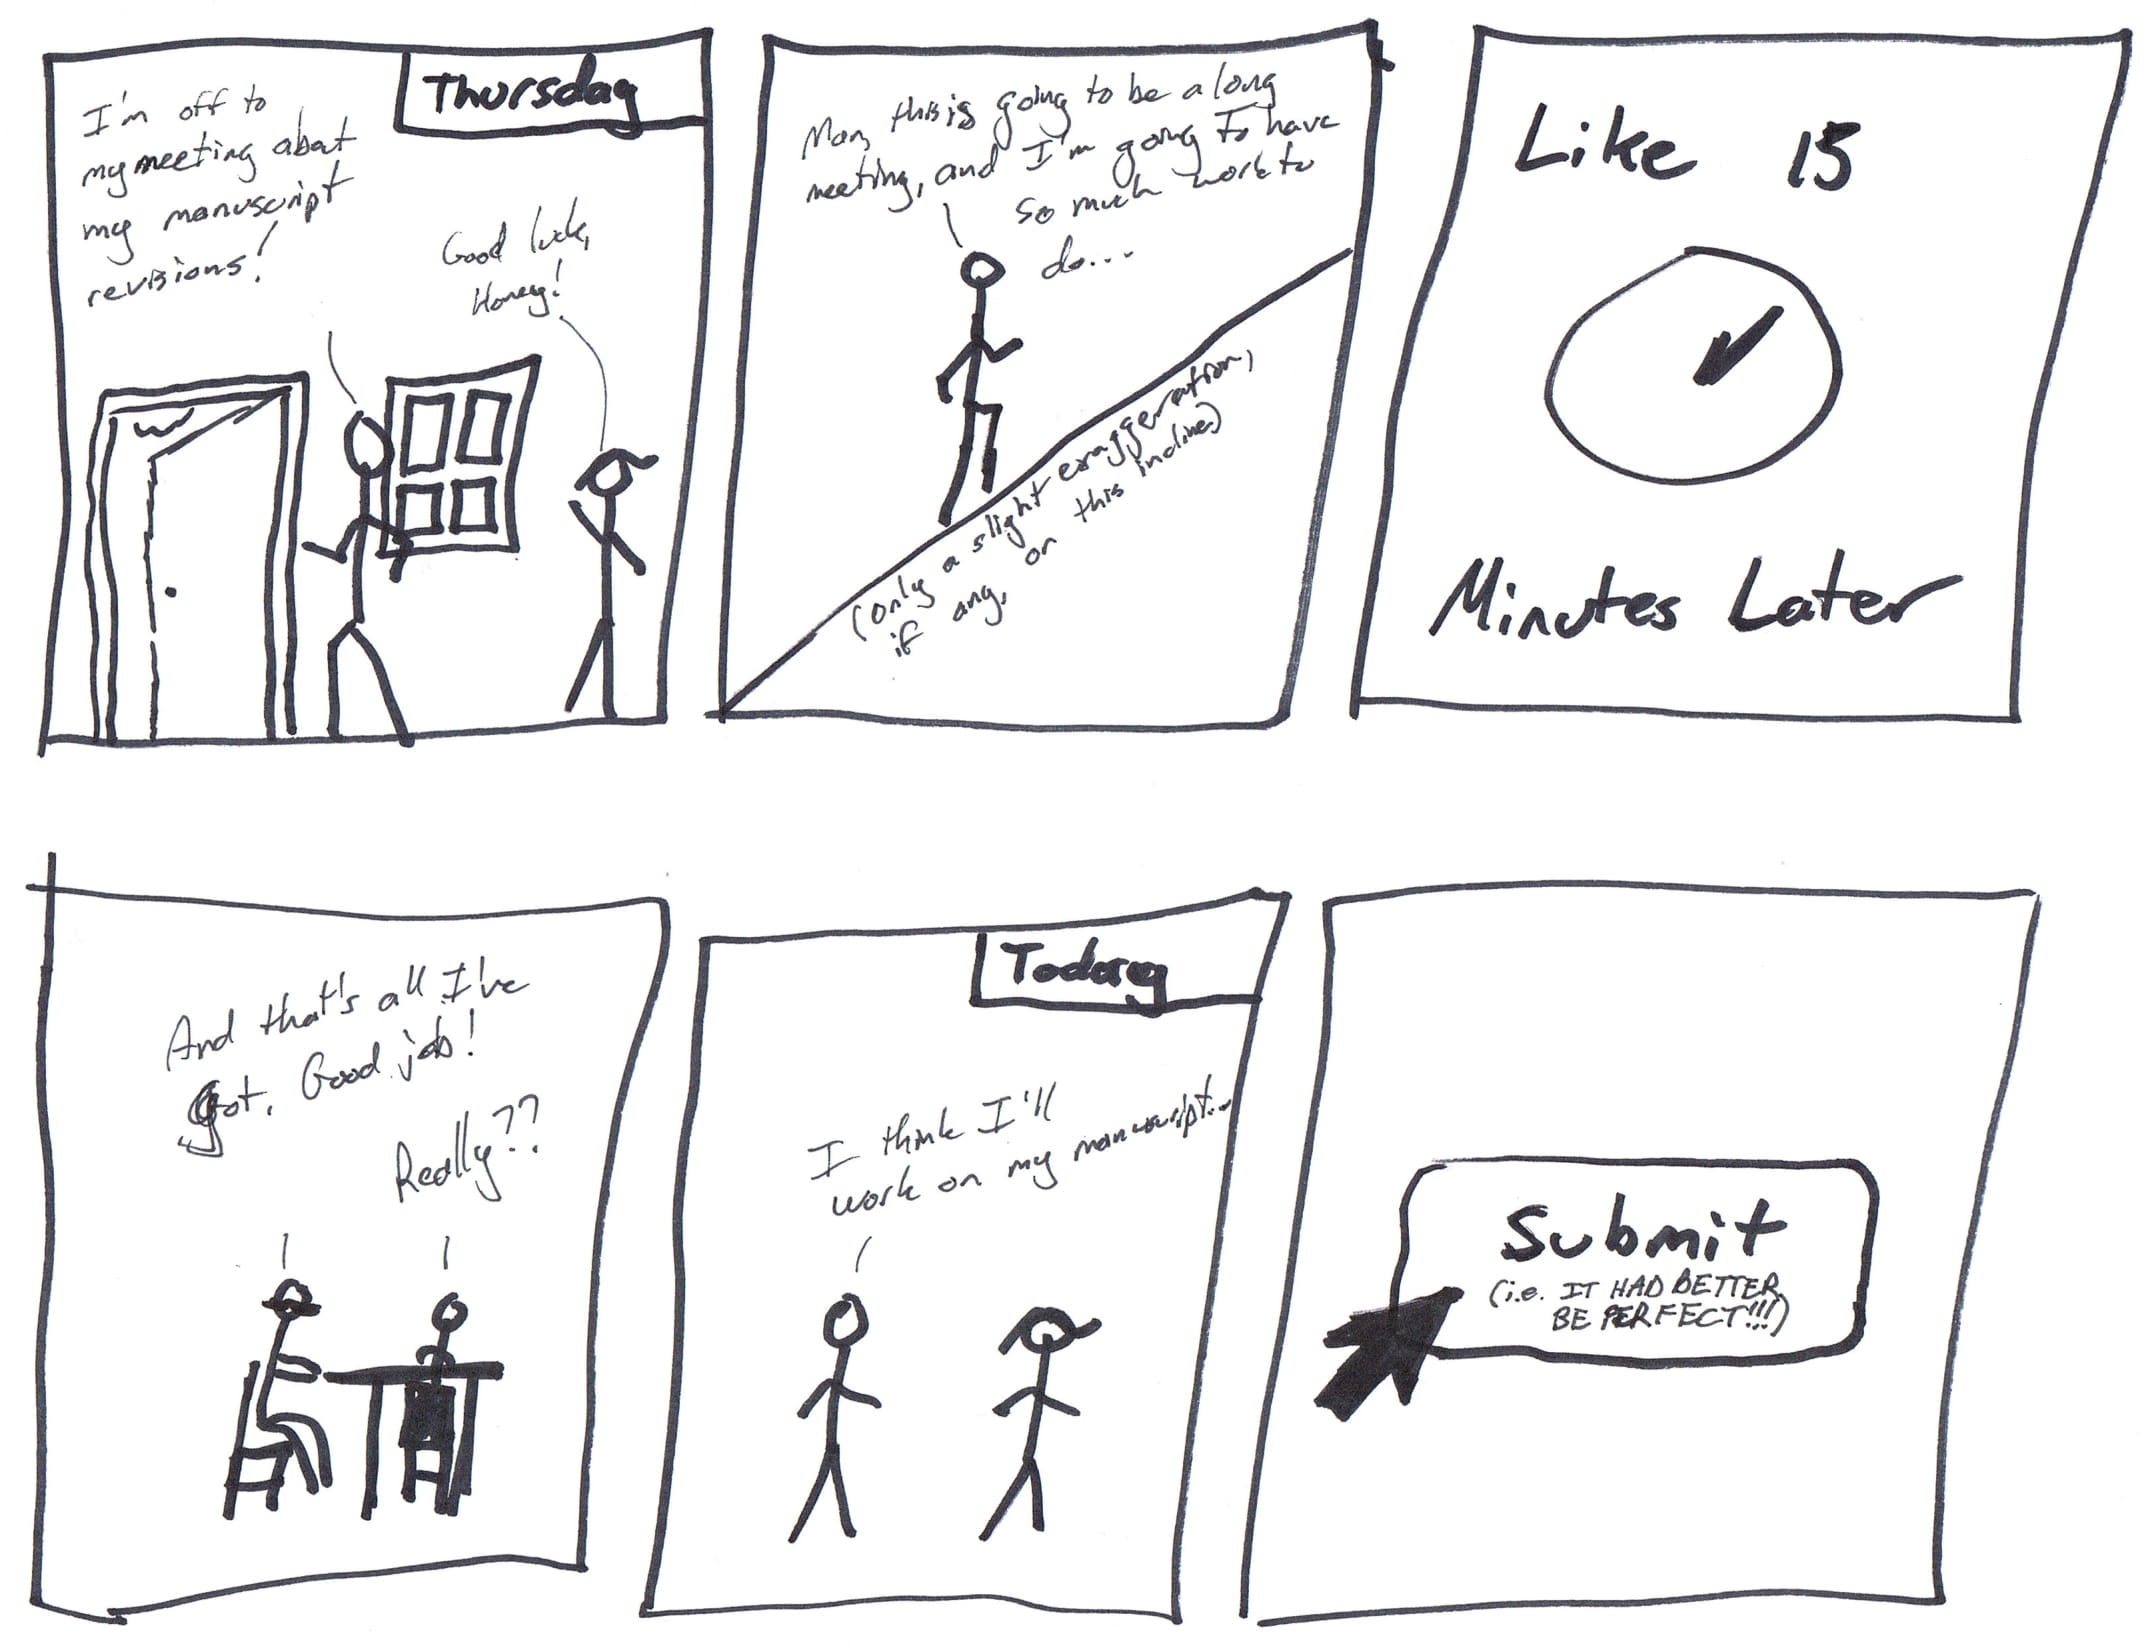 Thursday
I'm off to
my meeting about
my manuscript
revisions!
Good luck,
Honey!
Man, this is going to be a long
meeting, and I'm going to have
so much work to
do...
(only a slight exaggeration,
if any, on
this incline)
Like 15
Minutes Later
And that's all I've
got. Good job!
Really??
Today
I think I'll
work on my manuscript...
Submit
(i.e. IT HAD BETTER
BE PERFECT!!!)